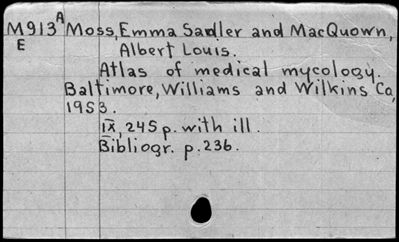 M913 A Moss, Emma Sadler and MacQuown,
E Albert Louis.
Atlas of medical mycology.
Baltimore, Williams and Wilkins Co,
1953.
IX, 245 p. with ill.
Bibliogr. p. 236.